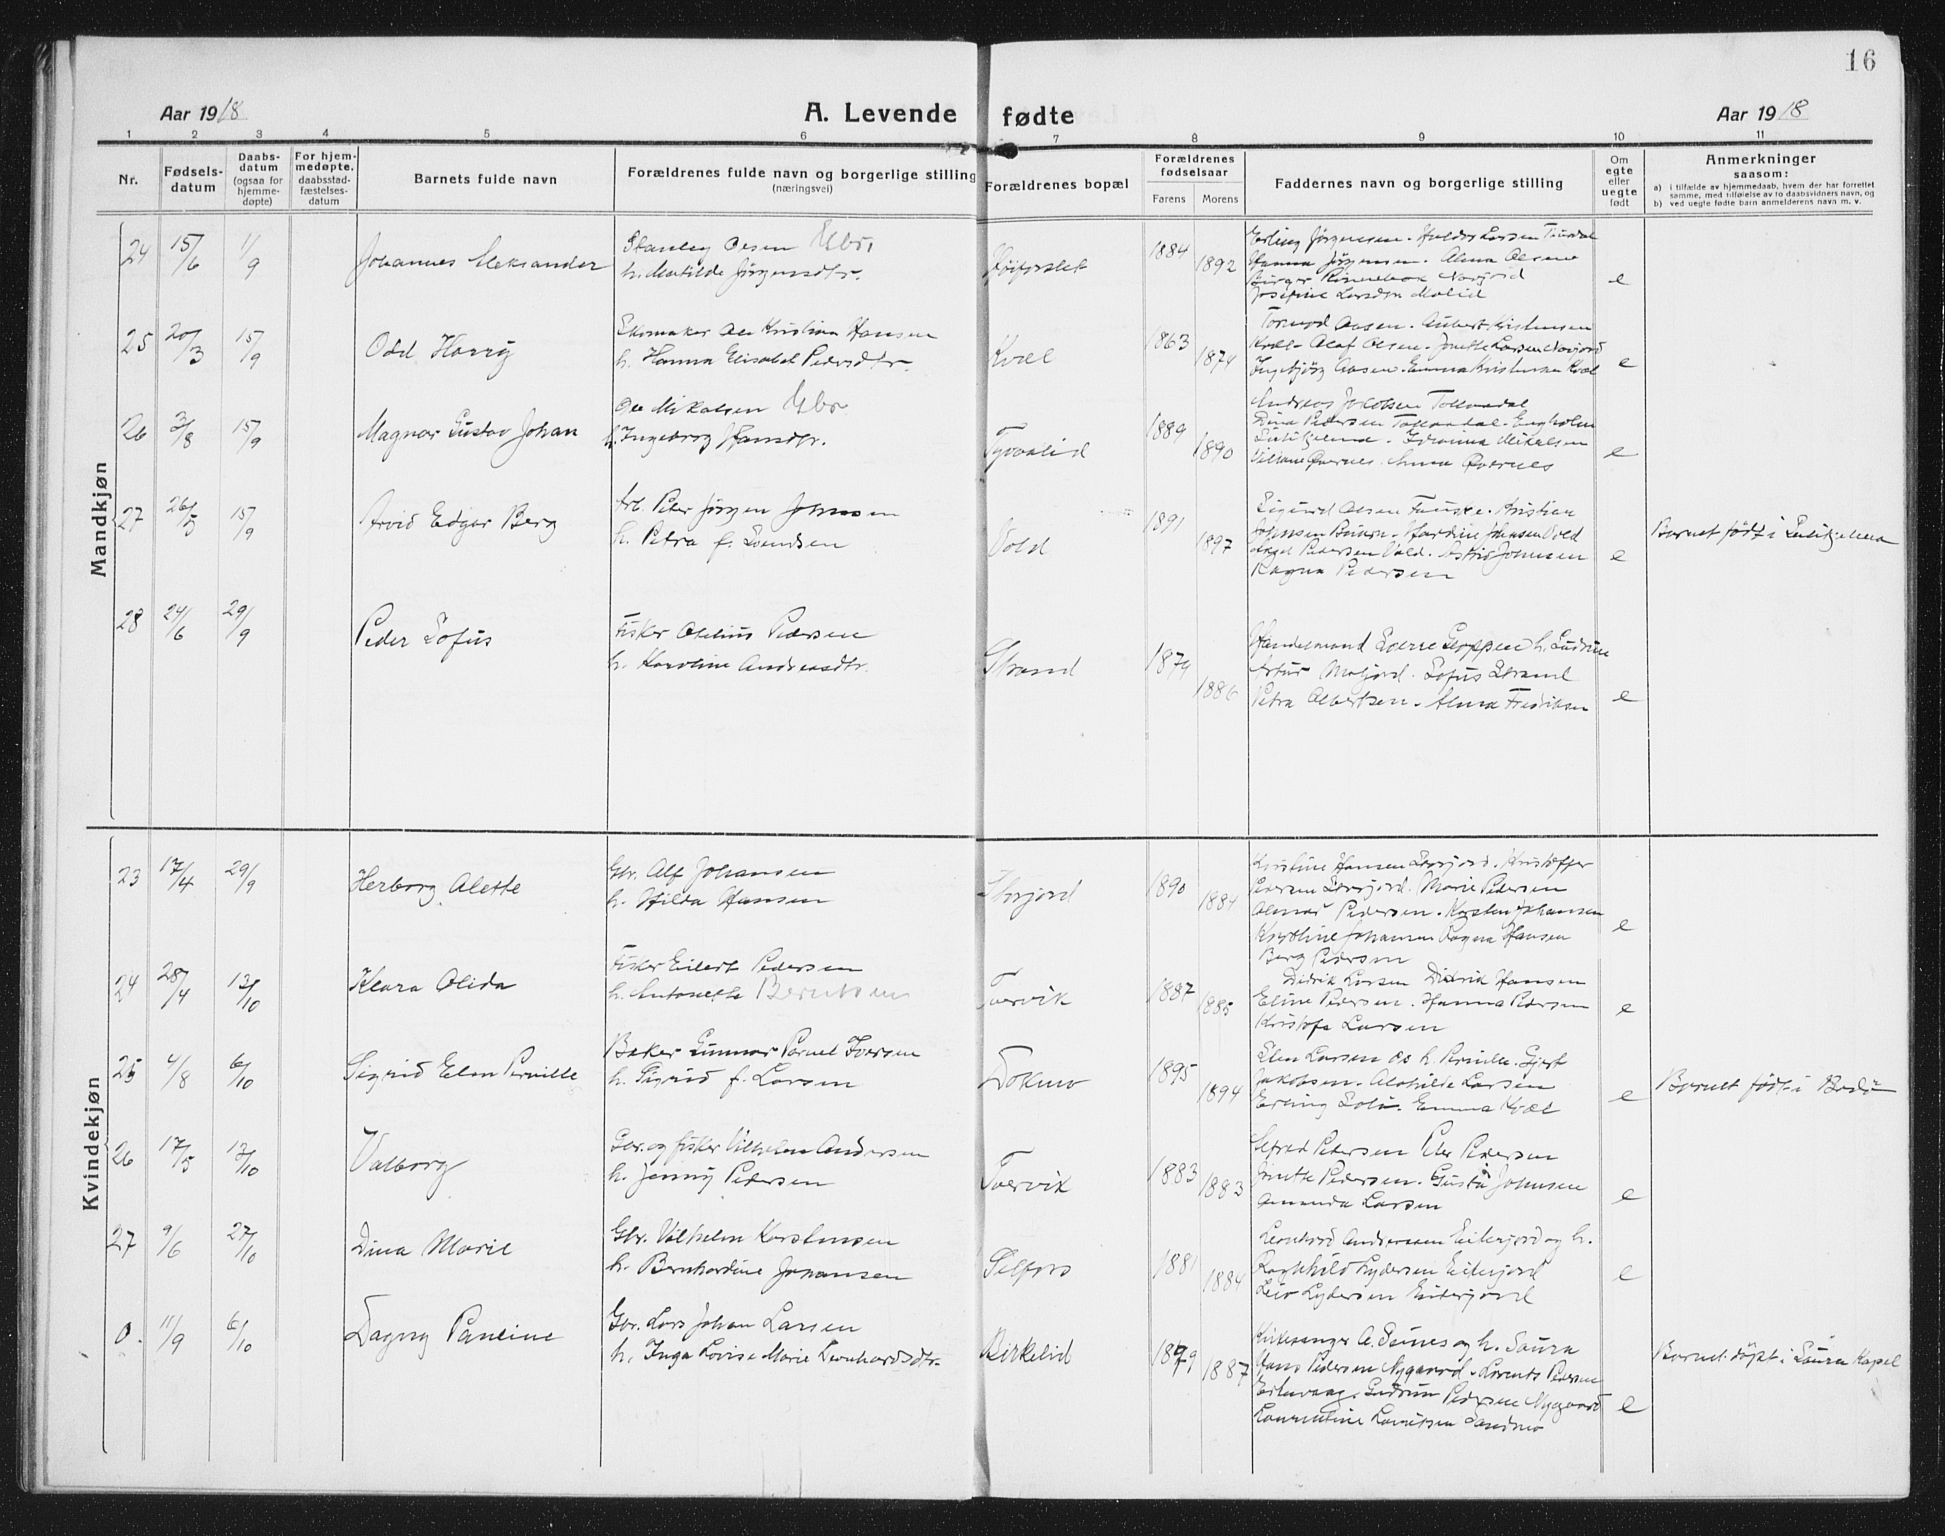 16
Aar 1918
A. Levende fødte
Aar 1918
1 2 3 4 5 6 7 8 9 10 11
Nr.
Fødsels-
datum
Daabs-
datum
(ogsaa for
hjemme-
døpte)
For hjem-
medøpte.
daabsstad-
fæstelses-
datum
Barnets fulde navn
Forældrenes fulde navn og borgerlige stilling
(næringsvei)
Forældrenes bopæl
Forældrenes
fødselsaar
Farens Morens
Faddernes navn og borgerlige stilling
Om
egte
eller
uegte
født
Anmerkninger
saasom:
a) i tilfælde av hjemmedaab, hvem der har forrettet
samme, med tilføielse av to daabsvidners navn, og
b) ved uegte fødte barn anmelderens navn m. v.
Mandkjøn
24 15/6 11/9 Johannes Aleksander
Stanley Olsen Gbr.
h. Matilde Jørgensdtr.
1884 1892
Erling Jørgensen. Larsen
Hanna Jørgensen. Alma Olsen
Josefine Larsen
e
25 20/3 15/9 Odd Harry
Skomaker Ole Kristian Hansen
h. Hanna Elisabet Pedersdtr.
Kvæl
1863 1874
Aasen. Kristensen
Kvæl. Olaf Olsen. Jonette Larsen
Ingebjørg Aasen. Emma Kristensen Kvæl
e
26 3/8 15/9 Magnar Gustav Johan
Ole Mikalsen Gbr
h. Ingeborg Hansdtr.
1889 1890
Andreas Jakobsen Tollaadal
Dina Pedersen Tollaadal. Engholm
Mikalsen
e
27 26/5 15/9 Arvid Edgar Berg
Arb. Peter Jørgen Johnsen
h. Petra f. Svendsen
Vold
1891 1897
Sigurd Olsen Fauske. Kristian
Johnsen Johansen Vold
Pedersen Vold. Astrid Johnsen
Ragna Pedersen
e
Barnet født i Sulitjelma
28 24/6 29/9 Peder Sofus
Fisker Pedersen
h. Karoline Andreasdtr.
Strand
1874 1886
Handelsmand Sverre Seppen h. Gudrun
Artur Sofus Strand
Petra Albertsen. Alma Fredriksen
e
Kvindekjøn
23 17/4 29/9 Herborg Alette
Gbr. Alf Johansen
h. Hilda Hansen
1890 1884
Kristine Hansen Kristoffer
Larsen Marie Pedersen
Pedersen. Karsten Johansen
Johansen Ragna Hansen
Berg Pedersen
e
24 28/4 13/10 Klara Olida
Fisker Eilert Pedersen
h. Antonette Berntsen
Tværvik
1887 1885
Didrik Larsen Didrik Hansen
Eline Pedersen. Hanna Pedersen
Larsen
e
25 4/8 6/10 Sigrid Elen Pernille
Baker Gunnar Parnel Iversen
h. Sigrid f. Larsen
Dokmo
1895 1894
Elen Larsen og h. Pernille. Gjert
Jakobsen. Larsen
Erling Emma Kvæl
e
Barnet født i Bodø
26 17/5 13/10 Valborg
Gbr. og fisker Vilhelm Andersen
h. Jenny Pedersen
Tværvik
1883 1883
Alfred Pedersen Pedersen
Jonette Pedersen. Gusta Johnsen
Amanda Larsen
e
27 9/6 27/10 Dina Marie
Gbr. Vilhelm Karstensen
h. Bernhardine Johansen
Selfors
1881 1884
Leonhard Andersen Eiterjord og h.
Ragnhild Lydersen Eiterjord
Leiv Lydersen Eiterjord
e
0. 11/9 6/10 Dagny Pauline
Gbr. Lars Johan Larsen
h. Inga Lovise Marie Leonhardsdtr.
Birkelid
1879 1887
Kirkesanger A. Seines og h. Laura
Hans Pedersen Nygaard. Lorents Pedersen
Gudrun Pedersen Nygaard
Lauritsen Sandmo
e
Barnet døpt i Saura Kapel